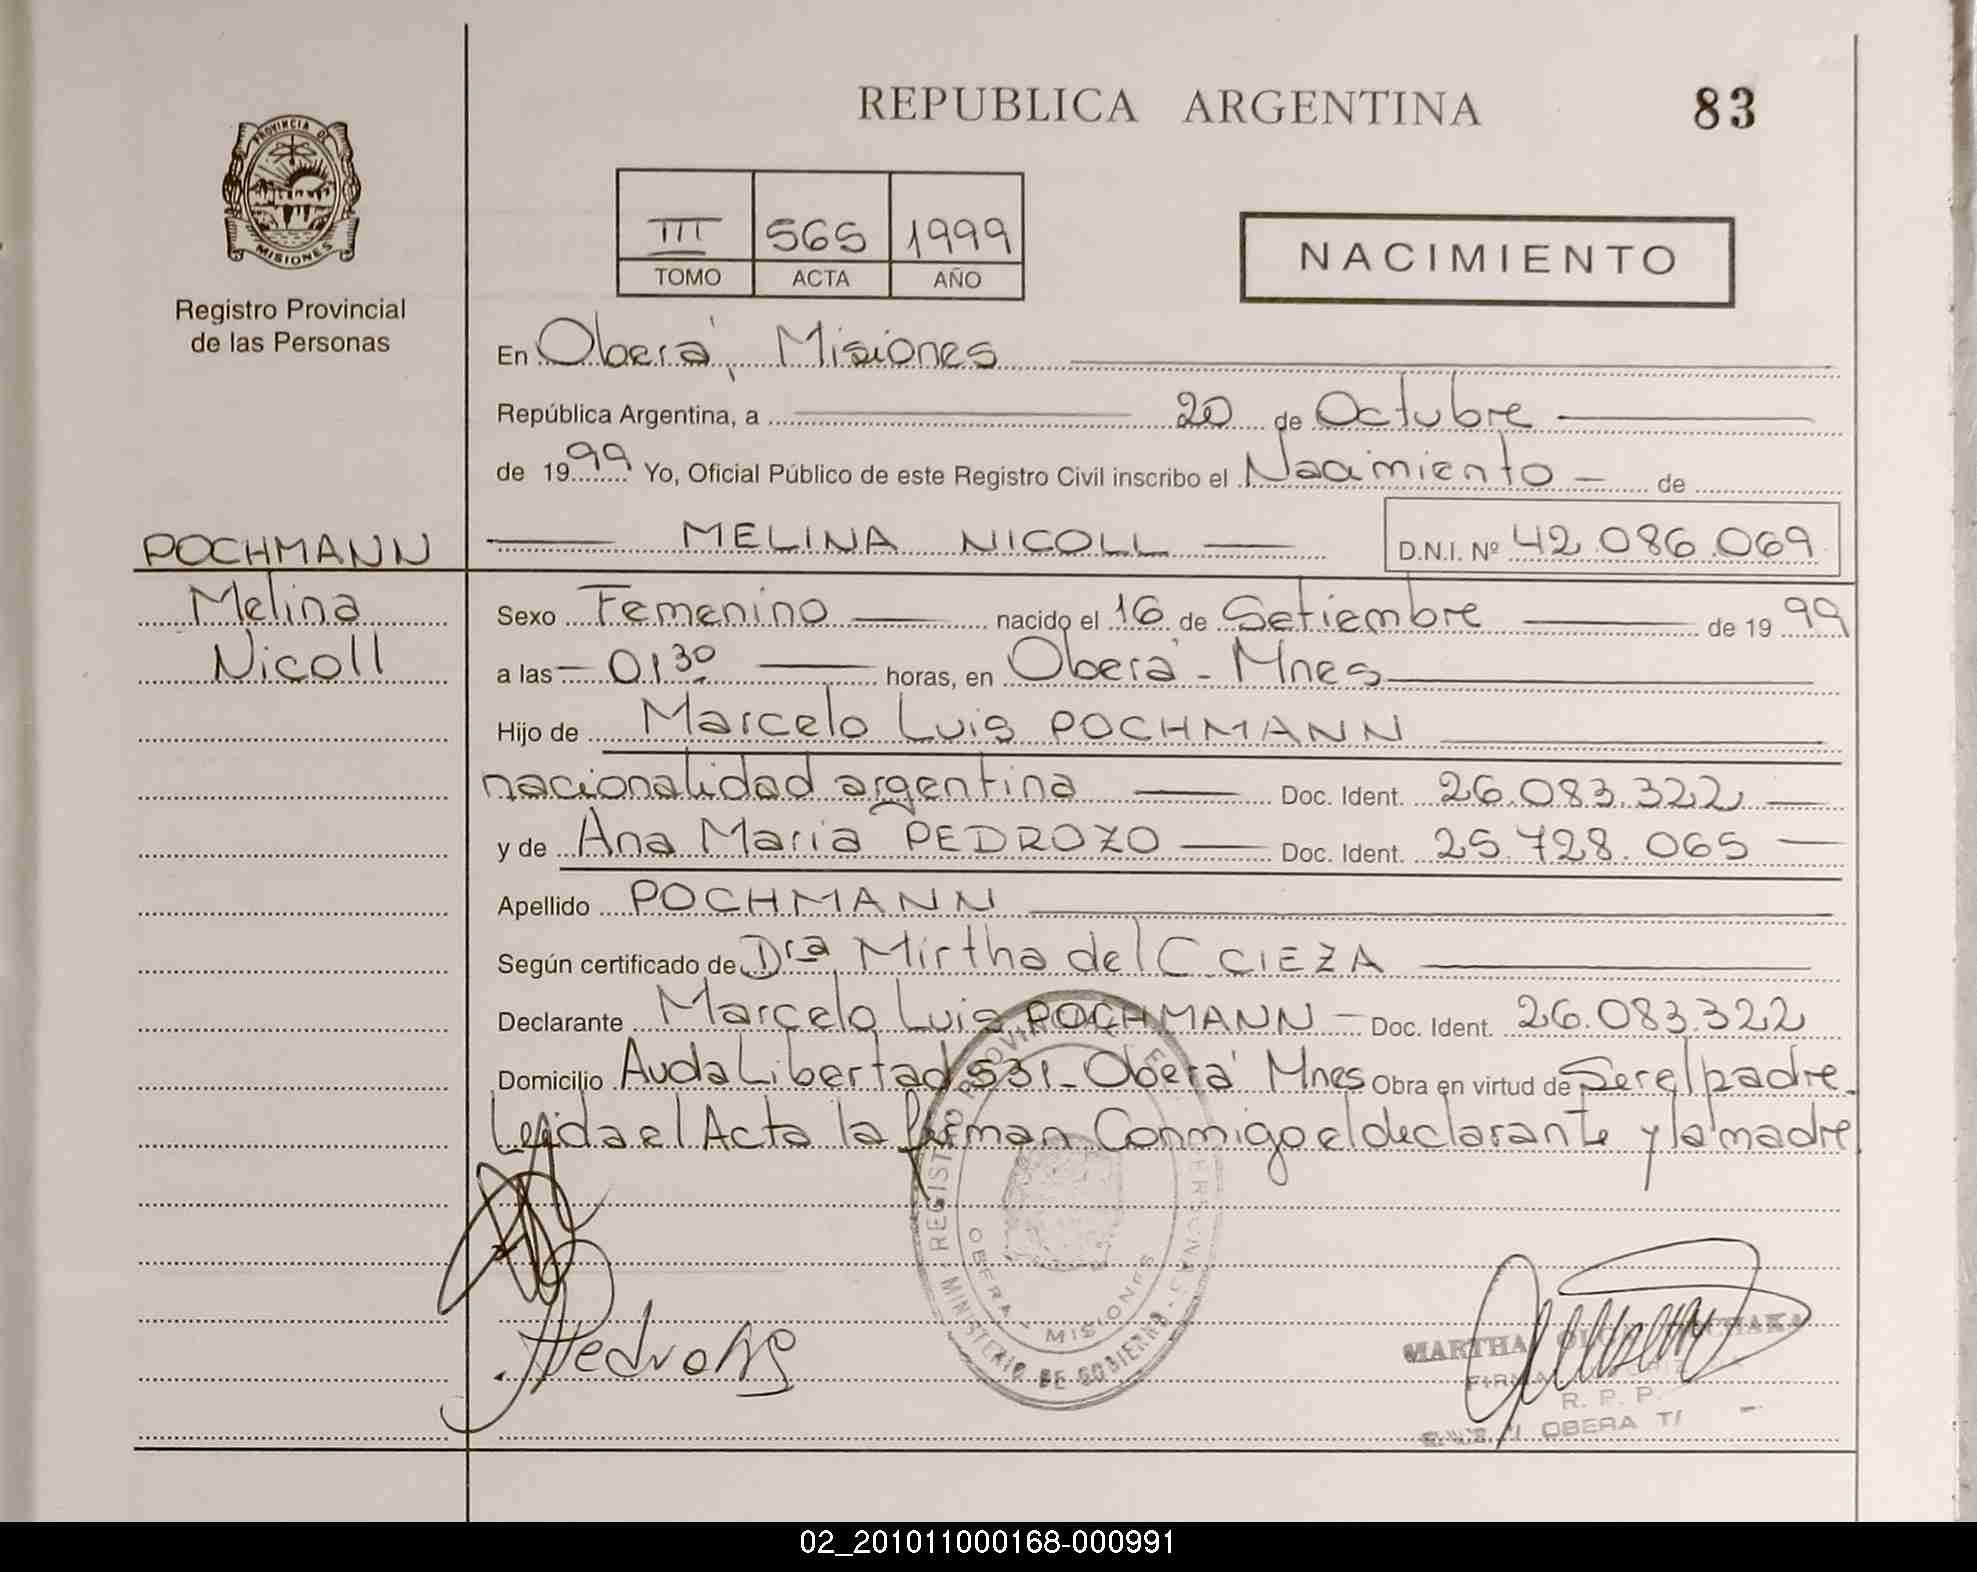 REPUBLICA ARGENTINA 83
PROVINCIA DE MISIONES
Registro Provincial
de las Personas
III 565 1999
TOMO ACTA AÑO
NACIMIENTO
En Oberá, Misiones
República Argentina, a 20 de Octubre
de 1999 Yo, Oficial Público de este Registro Civil inscribo el Nacimiento de
POCHMANN
Melina
Nicoll
MELINA NICOLL D.N.I. Nº 42.086.069
Sexo Femenino nacido el 16 de Setiembre de 1999
a las 01.30 horas, en Oberá - Mnes
Hijo de Marcelo Luis POCHMANN
nacionalidad argentina Doc. Ident. 26.083.322
y de Ana Maria PEDROZO Doc. Ident. 25.728.065
Apellido POCHMANN
Según certificado de Dra Mirtha del C. CIEZA
Declarante Marcelo Luis POCHMANN Doc. Ident. 26.083.322
Domicilio Avda Libertad 531 - Oberá Mnes Obra en virtud de Ser el padre
Leida el Acta la firman Conmigo el declarante y la madre
REGISTRO PROVIN
MINISTERIO DE GOBIERNO
OBERA - MISIONES
MARTHA OLGA
R. P. P.
OBERA
02_201011000168-000991